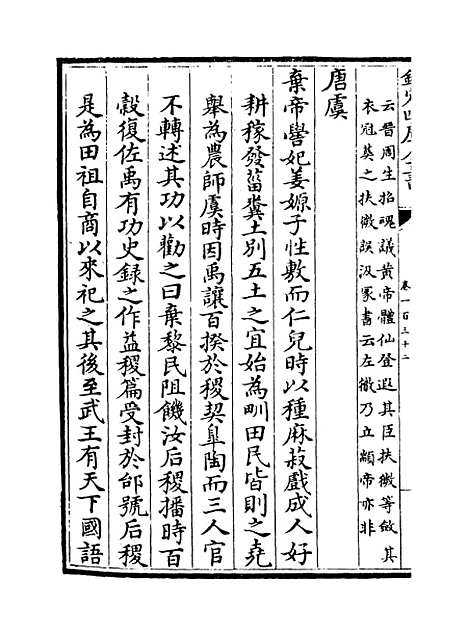 欽定四庫全書
卷一百三十二
云晉周生招魂議黃帝體仙登遐其臣扶微等斂其
衣冠葬之扶微誤汲冢書云左徹乃立顓帝亦非
唐虞
棄帝嚳妃姜嫄子性敷而仁兒時以種麻菽戲成人好
耕稼發菑糞土别五土之宜始為甽田民皆則之堯
舉為農師虞時因禹讓百揆於稷契臯陶而三人官
不轉述其功以勸之曰棄黎民阻饑汝后稷播時百
穀復佐禹有功史録之作益稷篇受封於邰號后稷
是為田祖自商以來祀之其後至武王有天下國語